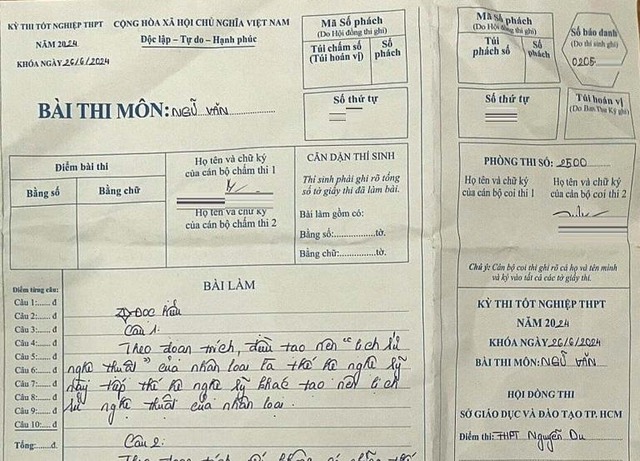 KỲ THI TỐT NGHIỆP THPT
NĂM 2024
KHÓA NGÀY 26/6/2024
CỘNG HÒA XÃ HỘI CHỦ NGHĨA VIỆT NAM
Độc lập - Tự do - Hạnh phúc
BÀI THI MÔN: NGỮ VĂN
Mã Số phách
(Do Hội đồng thi ghi)
Túi chấm số
(Túi hoán vị)
Số
phách
Số thứ tự
Điểm bài thi
Bằng số
Bằng chữ
Họ tên và chữ ký
của cán bộ chấm thi 1
Họ tên và chữ ký
của cán bộ chấm thi 2
CĂN DẶN THÍ SINH
Thí sinh phải ghi rõ tổng
số tờ giấy thi đã làm bài.
Bài làm gồm có:
Bằng số:...............tờ.
Bằng chữ:.............tờ.
Điểm từng câu:
Câu 1:...... đ
Câu 2:...... đ
Câu 3:...... đ
Câu 4:...... đ
Câu 5:...... đ
Câu 6:...... đ
Câu 7:...... đ
Câu 8:...... đ
Câu 9:...... đ
Câu 10:..... đ
Tổng:.......đ.
BÀI LÀM
I) ĐỌC HIỂU
Câu 1:
Theo đoạn trích, điều tạo nên "lịch sử
nghệ thuật" của nhân loại là thế hệ nghệ sỹ
này tiếp thế hệ nghệ sỹ khác tạo nên lịch
sử nghệ thuật của nhân loại.
Câu 2:
Theo đoạn trích,
Mã Số phách
(Do Hội đồng thi ghi)
Túi
phách số
Số
phách
Số thứ tự
Số báo danh
(Do thí sinh ghi)
0205
Túi hoán vị
(Do Ban Thư Ký ghi)
PHÒNG THI SỐ: 2500
Họ tên và chữ ký
của cán bộ coi thi 1
Họ tên và chữ ký
của cán bộ coi thi 2
Chú ý: Cán bộ coi thi ghi rõ cả họ và tên mình
và ký vào tất cả các tờ giấy thi.
KỲ THI TỐT NGHIỆP THPT
NĂM 2024
KHÓA NGÀY 26/6/2024
BÀI THI MÔN: NGỮ VĂN
HỘI ĐỒNG THI
SỞ GIÁO DỤC VÀ ĐÀO TẠO TP. HCM
Điểm thi: THPT Nguyễn Du